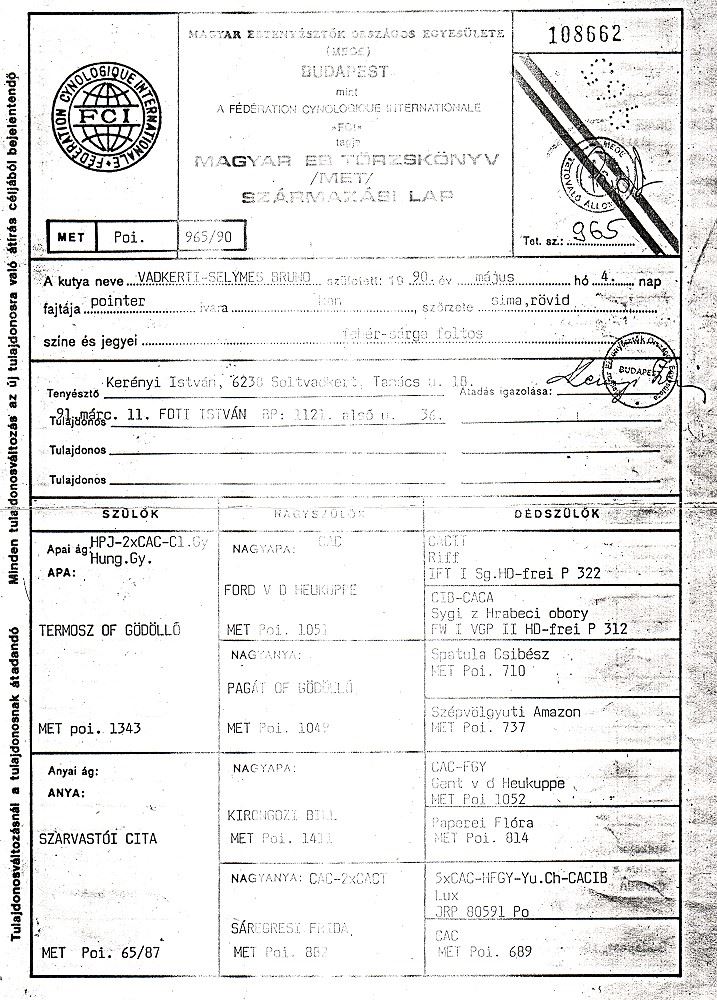 MAGYAR EBTENYÉSZTŐK ORSZÁGOS EGYESÜLETE
(MEOE)
BUDAPEST
mint
A FÉDÉRATION CYNOLOGIQUE INTERNATIONALE
»FCI«
tagja
MAGYAR EB TÖRZSKÖNYV
/MET/
SZÁRMAZÁSI LAP
FÉDÉRATION CYNOLOGIQUE INTERNATIONALE
FCI
108662
MEOE
Tot. sz.: 965
MET Poi. 965/90
A kutya neve VADKERTI-SELYMES BRUNO született: 19 90. év május hó 4. nap
fajtája pointer ivara kan szőrzete sima,rövid
színe és jegyei fehér-sárga foltos
Tenyésztő Kerényi István, 6230 Soltvadkert, Tanács u. 18. Átadás igazolása:
BUDAPEST
Tulajdonos 91.márc. 11. FOTI ISTVÁN BP: 1121. alsó u. 36.
Tulajdonos
Tulajdonos
SZÜLŐK NAGYSZÜLŐK DÉDSZÜLŐK
Apai ág: HPJ-2xCAC-Cl.Gy
Hung.Gy.
APA:
TERMOSZ OF GÖDÖLLŐ
MET poi. 1343
NAGYAPA: CAC
FORD V D HEUKUPPE
MET Poi. 1051
NAGYANYA:
PAGÁT OF GÖDÖLLŐ
MET Poi. 1049
CACIT
Riff
IFT I Sg.HD-frei P 322
CIB-CACA
Sygi z Hrabeci obory
FW I VGP II HD-frei P 312
Spatula Csibész
MET Poi. 710
Szépvölgyuti Amazon
MET Poi. 737
Anyai ág:
ANYA:
SZARVASTÓI CITA
MET Poi. 65/87
NAGYAPA:
KIRONGOZI BILL
MET Poi.
NAGYANYA: CAC-2xCACT
SÁREGRESI FRIDA
MET Poi. 882
CAC-FGY
Gent v d Heukuppe
MET Poi 1052
Paperei Flóra
MET Poi. 814
5xCAC-HFGY-Yu.Ch-CACIB
Lux
JRP 80591 Po
CAC
MET Poi. 689
Tulajdonosváltozásnál a tulajdonosnak átadandó
Minden tulajdonosváltozás az új tulajdonosra való átírás céljából bejelentendő